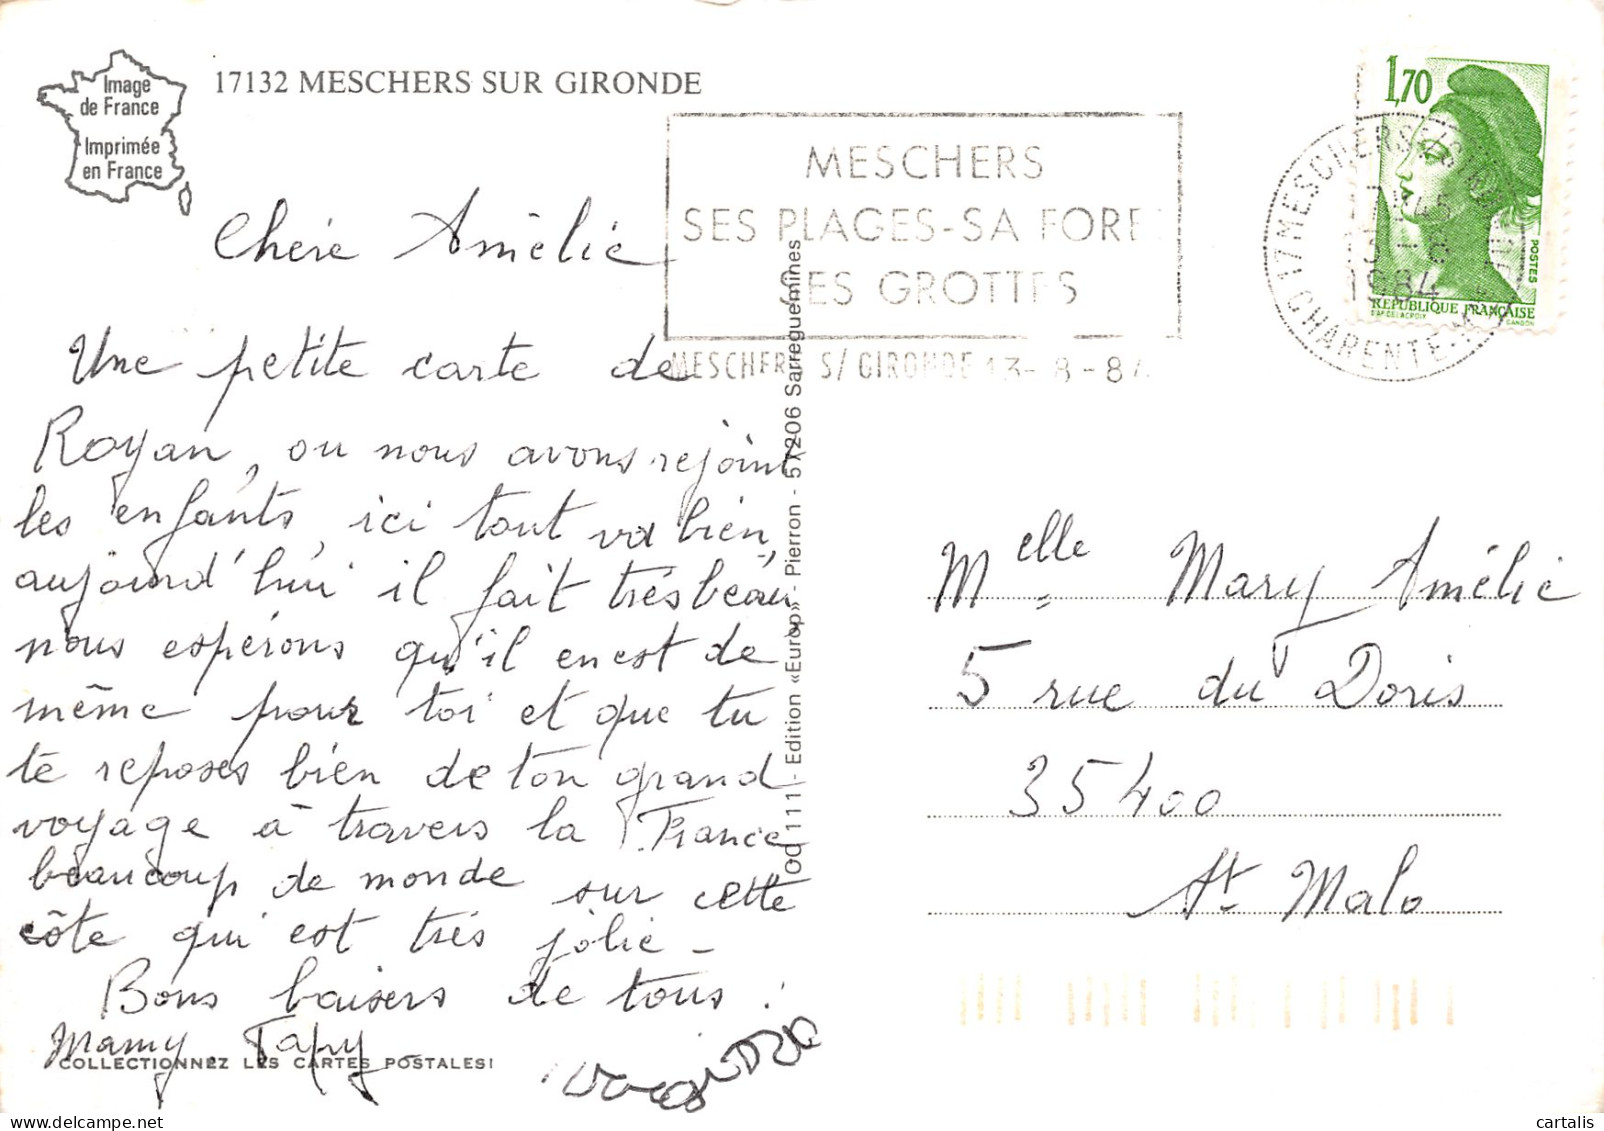 Image
de France
Imprimée
en France
17132 MESCHERS SUR GIRONDE
MESCHERS
SES PLAGES-SA FORE
SES GROTTES
MESCHERS S/ GIRONDE 13-8-84
1,70
POSTES
REPUBLIQUE FRANÇAISE
17 MESCHERS S/GIRONDE
1984
CHARENTE
Chére Amélie
Une petite carte de
Royan, ou nous avons rejoint
les enfants, ici tout va bien,
aujourd'hui il fait trés beau,
nous espérons qu'il en est de
même pour toi et que tu
te reposes bien de ton grand
voyage à travers la France
beaucoup de monde sur cette
côte qui est trés jolie -
Bons baisers de tous.
Mamy Papy
COLLECTIONNEZ LES CARTES POSTALES!
OD 1111 - Edition «Europ» Pierron - 57206 Sarreguemines
Melle Mary Amélie
5 rue du Doris
35400
St Malo
cartalis